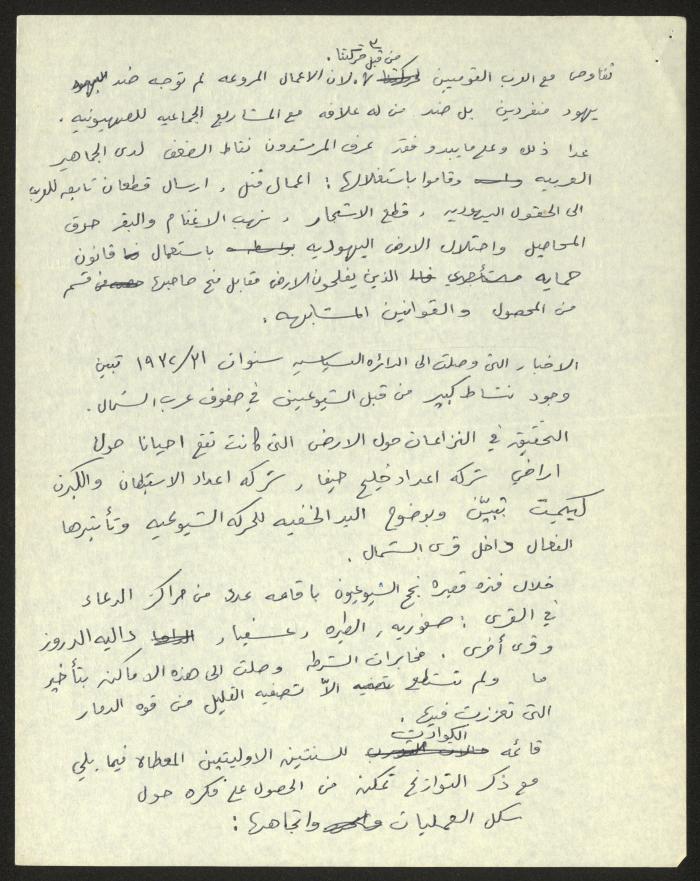 ٣
من قبل حركتنا.
تفاوض مع العرب القوميين لان الاعمال المروعه لم توجه ضد
يهود منفردين بل ضد من له علاقه مع المشاريع الجماعيه للصهيونيه.
عدا ذلك وعلى ما يبدو فقد عرف المرشدون نقاط الضعف لدى الجماهير
العربيه وقاموا باستغلالها: اعمال قتل، ارسال قطعان تابعه للعرب
الى الحقول اليهوديه، قطع الاشجار، نهب الاغنام والبقر حرق
المحاصيل واحتلال الارض اليهوديه باستعمال قانون
حمايه مستأجري الذين يفلحون الارض مقابل منح صاحبها قسم
من المحصول والقوانين المشابهه.
الاخبار التى وصلت الى الدائره السياسيه سنوات ١٩٣٢/٣١ تبين
وجود نشاط كبير من قبل الشيوعيين في صفوف عرب الشمال.
التحقيق في النزاعات حول الارض التى كانت تقع احيانا حول
اراضي شركه اعداد خليج حيفا، شركه اعداد الاستيطان والكيرن
كييمت تبيّن وبوضوح اليد الخفيه للحركه الشيوعيه وتأثيرها
الفعال داخل قرى الشمال.
خلال فتره قصيره نجح الشيوعيون باقامه عدد من مراكز الدعاء
في القرى: صفوريه، الطيره، عسفيا، داليه الدروز
وقرى أخرى. مخابرات الشرطه وصلت الى هذه الاماكن بتأخير
ما ولم تستطع الاّ تصفيه القليل من قوه الدمار
التى تعززت فيها.
الحوادث
قائمه للسنتين الاوليتين المعطاه فيما يلي
مع ذكر التواريخ تمكن من الحصول على فكره حول
شكل العمليات واتجاهها: